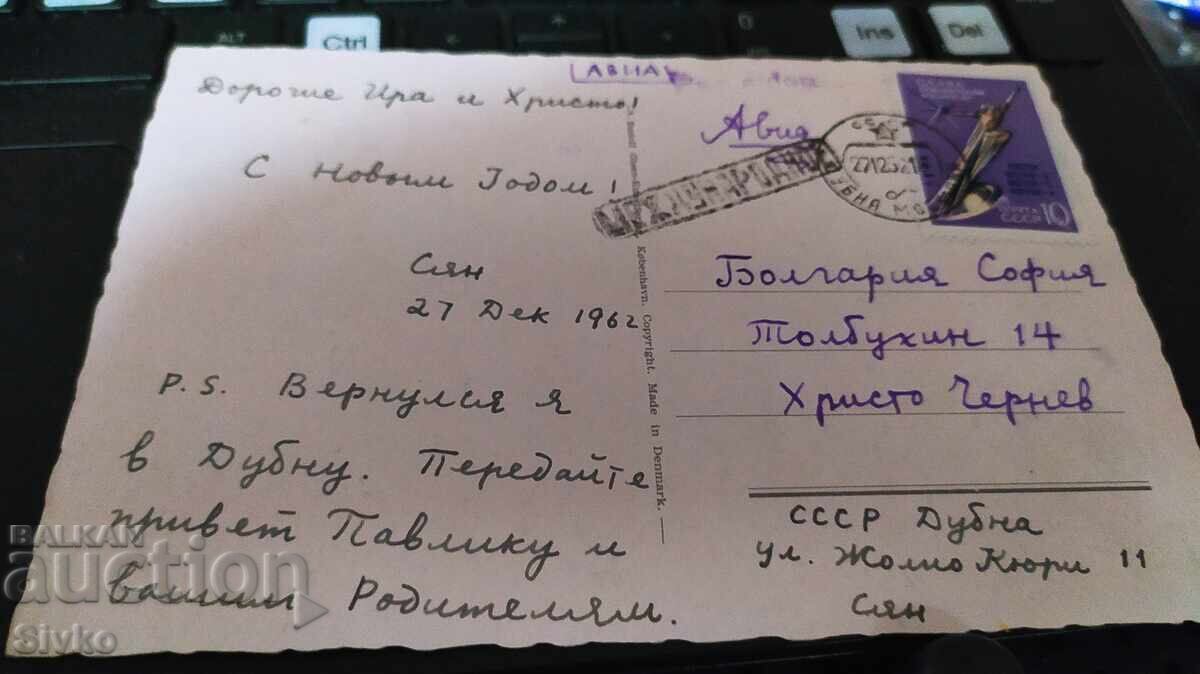 Ctrl
Ins
Del
ALT
АВИА
Дорогие Ира и Христо!
С Новым Годом!
Сян
27 Дек 1962
P.S. Вернулся я
в Дубну. Передайте
привет Павлику и
вашим Родителям.
København. Copyright. Made in Denmark.
Авиа
МЕЖДУНАРОДНОЕ
ПОЧТА
СССР 10
Болгария София
Толбухин 14
Христо Чернев
СССР Дубна
ул. Жолио Кюри 11
Сян
BALKAN
auction
Sivko